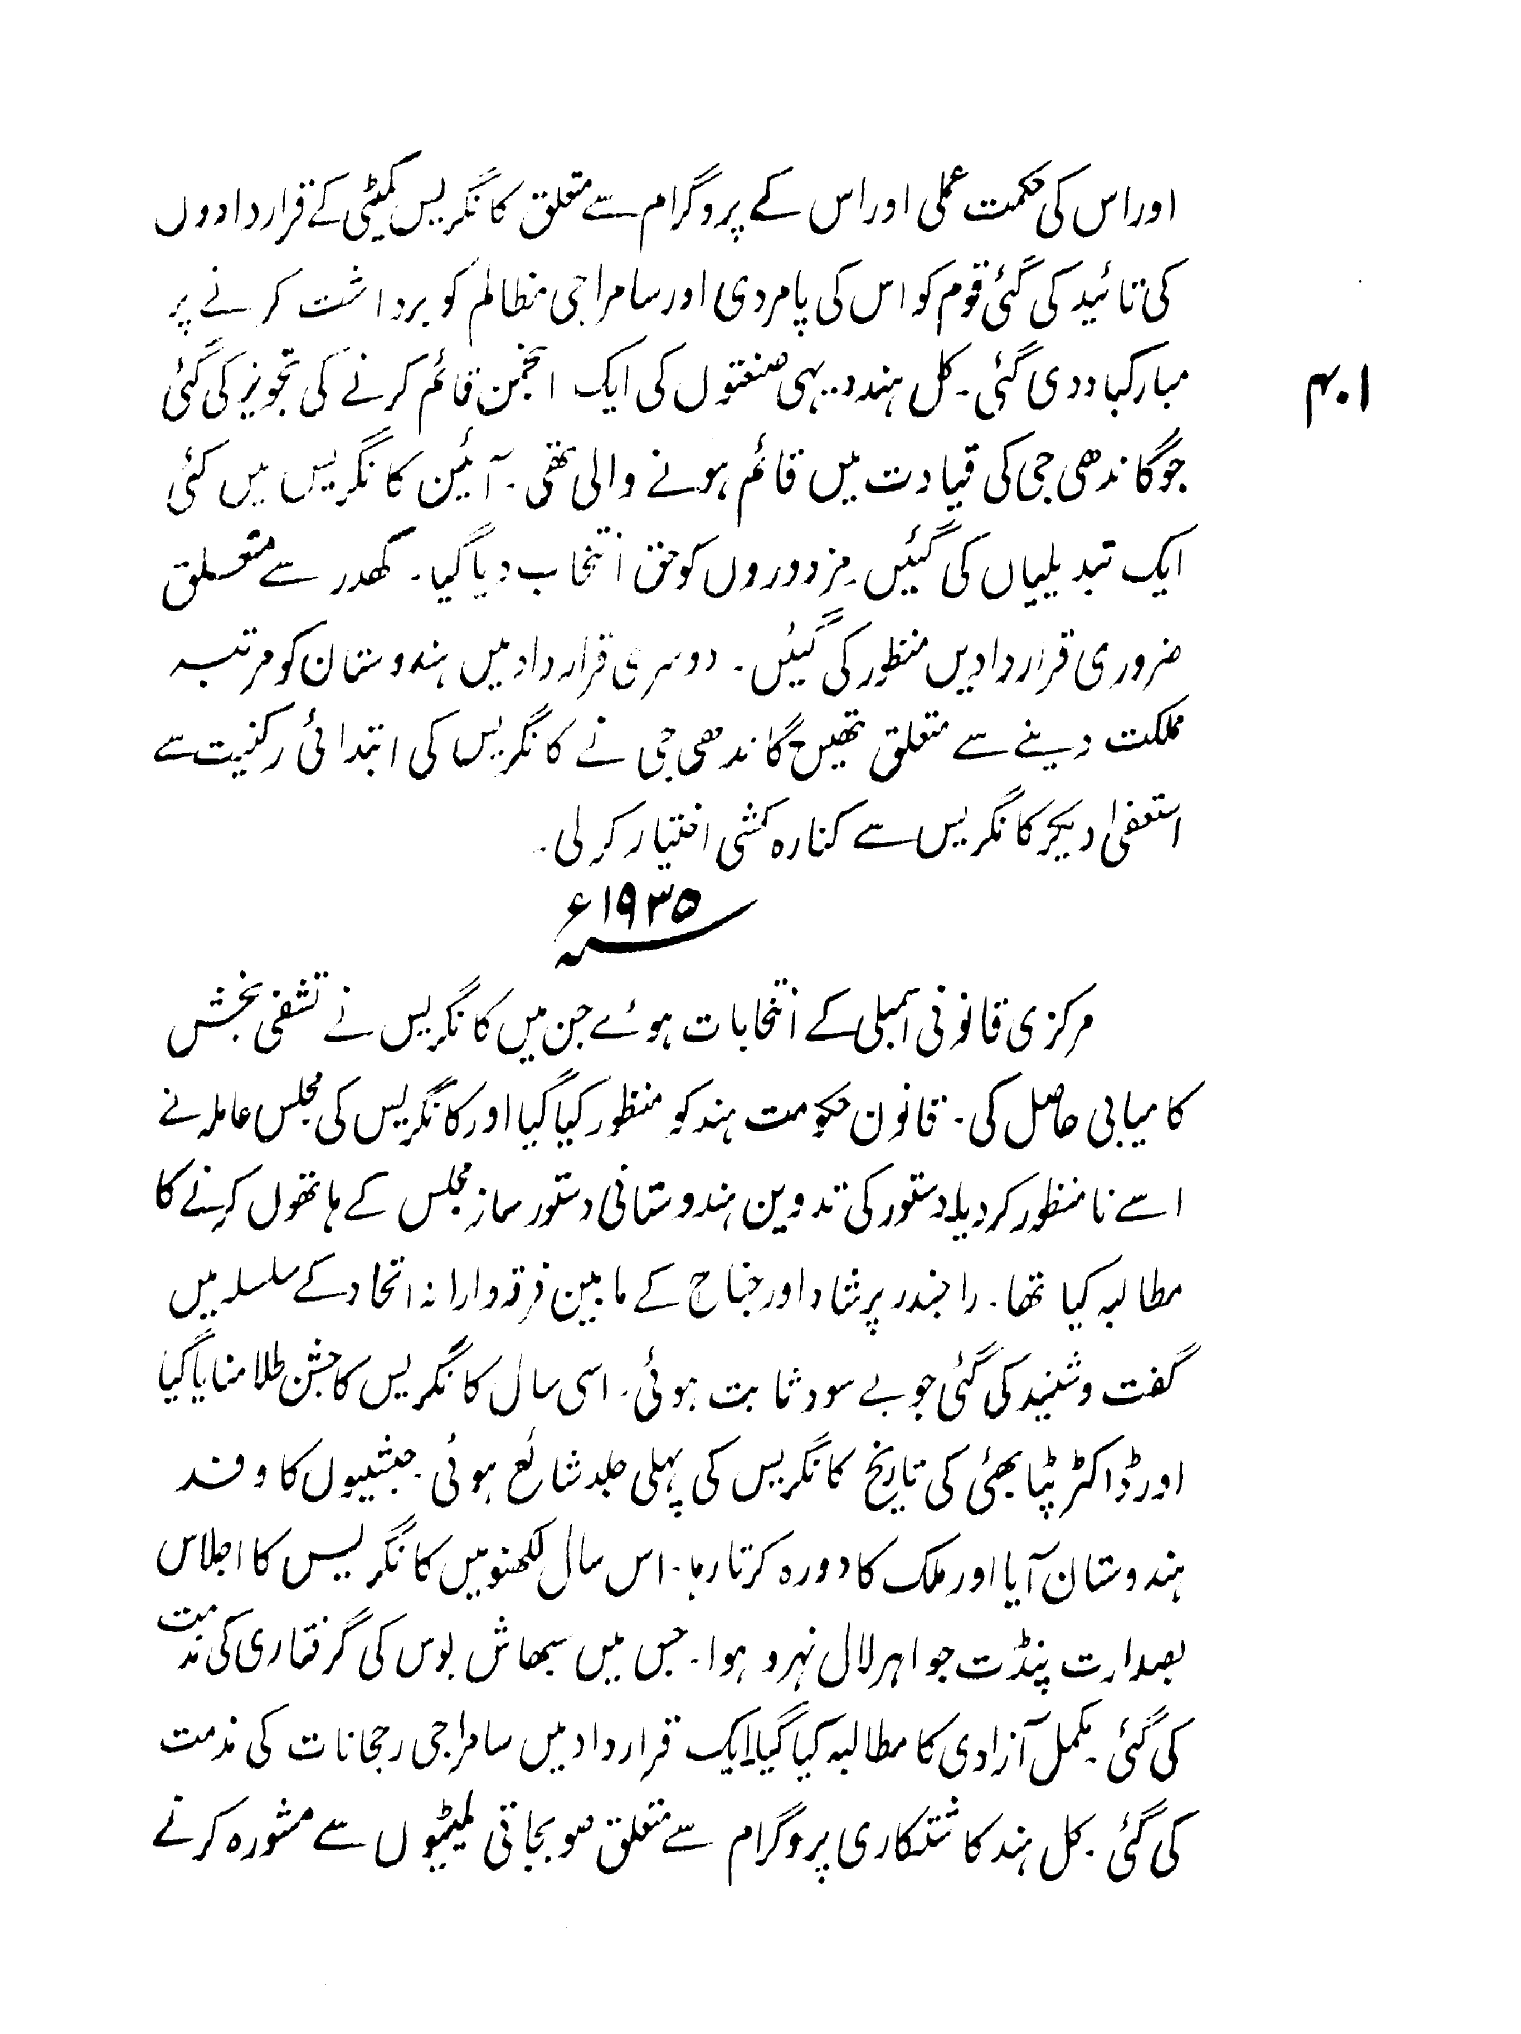 اور اس کی حکمت عملی اور اس کے پروگرام سے متعلق کانگریس کمیٹی کے قراردادوں
کی تائید کی گئی قوم کو اس کی پامردی اور سامراجی مظالم کو برداشت کرنے پر
مبارکباد دی گئی۔ کل ہند دیہی صنعتوں کی ایک انجمن قائم کرنے کی تجویز کی گئی
۴۰۱
جو گاندھی جی کی قیادت میں قائم ہونے والی تھی۔ آئین کانگریس میں کئی
ایک تبدیلیاں کی گئیں۔ مزدوروں کو حق انتخاب دیا گیا۔ کھدر سے متعلق
ضروری قراردادیں منظور کی گئیں۔ دوسری قرارداد میں ہندوستان کو مرتبہ
مملکت دینے سے متعلق تھیں گاندھی جی نے کانگریس کی ابتدائی رکنیت سے
استعفیٰ دیکر کانگریس سے کنارہ کشی اختیار کر لی۔
سنہ ۱۹۳۵ء
مرکزی قانونی اسمبلی کے انتخابات ہوئے جن میں کانگریس نے تشفی بخش
کامیابی حاصل کی۔ قانون حکومت ہند کو منظور کیا گیا اور کانگریس کی مجلس عاملہ نے
اسے نامنظور کر دیا۔ دستور کی تدوین ہندوستانی دستور ساز مجلس کے ہاتھوں کرنے کا
مطالبہ کیا تھا۔ راجندر پرشاد اور جناح کے مابین فرقہ وارانہ اتحاد کے سلسلہ میں
گفت و شنید کی گئی جو بے سود ثابت ہوئی۔ اسی سال کانگریس کا جشن طلا منایا گیا
اور ڈاکٹر پٹابھئی کی تاریخ کانگریس کی پہلی جلد شائع ہوئی۔ حبشیوں کا وفد
ہندوستان آیا اور ملک کا دورہ کرتا رہا۔ اس سال لکھنو میں کانگریس کا اجلاس
بصدارت پنڈت جواہر لال نہرو ہوا۔ جس میں سبھاش بوس کی گرفتاری کی مذمت
کی گئی۔ مکمل آزادی کا مطالبہ کیا گیا۔ ایک قرارداد میں سامراجی رجحانات کی مذمت
کی گئی۔ کل ہند کاشتکاری پروگرام سے متعلق صوبجاتی کمیٹیوں سے مشورہ کرنے